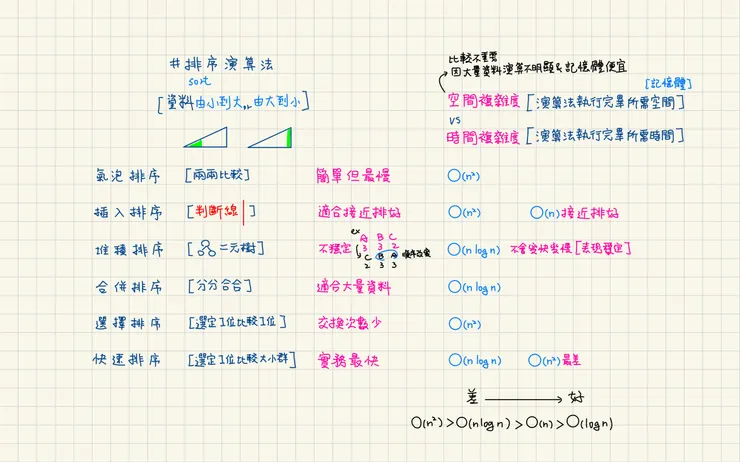 #排序演算法
sort
[資料由小到大or由大到小]
比較不重要
因大量資料演算不明顯&記憶體便宜
[記憶體]
空間複雜度[演算法執行完畢所需空間]
vs
時間複雜度[演算法執行完畢所需時間]
氣泡排序 [兩兩比較] 簡單但最慢 O(n²)
插入排序 [判斷線|] 適合接近排好 O(n²) O(n)接近排好
堆積排序 [二元樹] 不穩定 O(n log n) 不會變快變慢[表現穩定]
ex
A B C
3 3 2
C B A 順序改變
2 3 3
合併排序 [分分合合] 適合大量資料 O(n log n)
選擇排序 [選定1位比較1位] 交換次數少 O(n²)
快速排序 [選定1位比較大小群] 實務最快 O(n log n) O(n²)最差
差 → 好
O(n²)>O(n log n)>O(n)>O(log n)